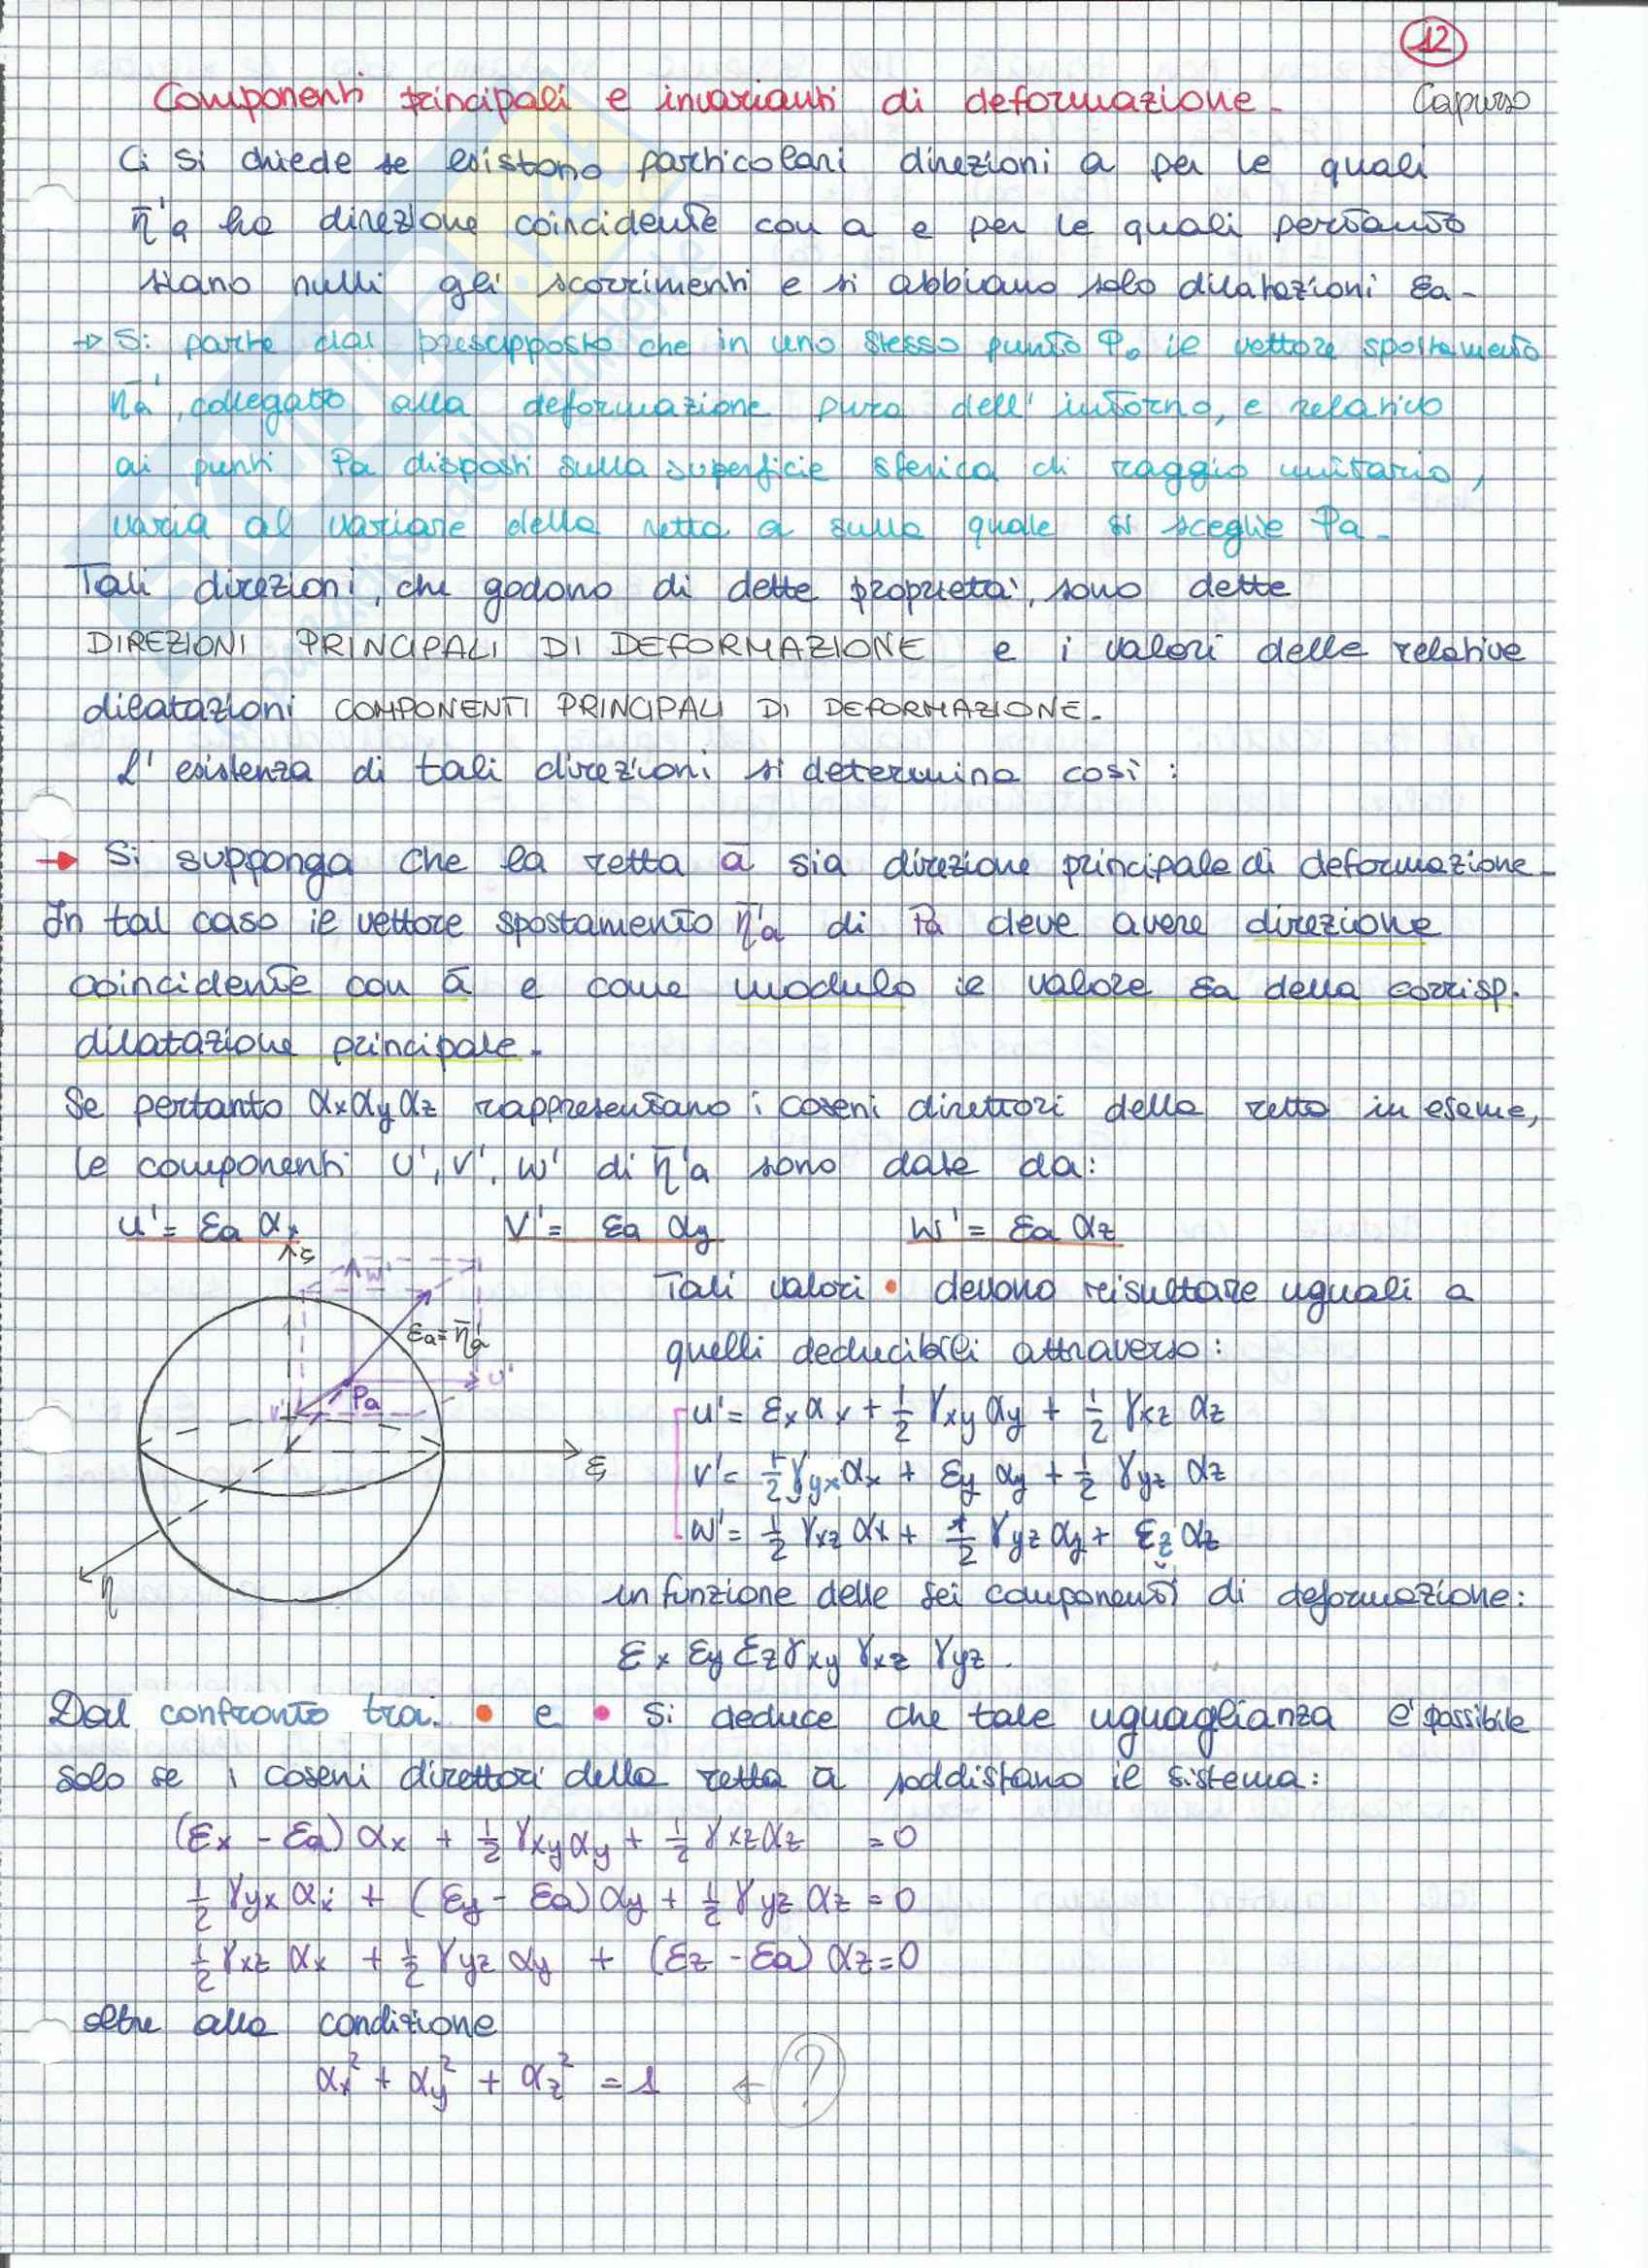 12
Componenti principali e invarianti di deformazione. Capurso
Ci si chiede se esistono particolari direzioni a per le quali
η̄'a ha direzione coincidente con a e per le quali pertanto
siano nulli gli scorrimenti e si abbiano solo dilatazioni εa.
→ Si parte dal presupposto che in uno stesso punto P₀ il vettore spostamento
η̄a', collegato alla deformazione pura dell'intorno, e relativo
ai punti Pa disposti sulla superficie sferica di raggio unitario,
varia al variare della retta a sulla quale si sceglie Pa.
Tali direzioni, che godono di dette proprietà, sono dette
DIREZIONI PRINCIPALI DI DEFORMAZIONE e i valori delle relative
dilatazioni COMPONENTI PRINCIPALI DI DEFORMAZIONE.
L'esistenza di tali direzioni si determina così:
→ Si supponga che la retta a sia direzione principale di deformazione.
In tal caso il vettore spostamento η̄'a di Pa deve avere direzione
coincidente con a e come modulo il valore εa della corrisp.
dilatazione principale.
Se pertanto αx αy αz rappresentano i coseni direttori della retta in esame,
le componenti u', v', w' di η̄'a sono date da:
u' = εa αx v' = εa αy w' = εa αz
ζ
w'
εa = η̄'a
u'
v'
Pa
ξ
η
Tali valori • devono risultare uguali a
quelli deducibili attraverso:
u' = εx αx + 1/2 γxy αy + 1/2 γxz αz
v' = 1/2 γyx αx + εy αy + 1/2 γyz αz
w' = 1/2 γxz αx + 1/2 γyz αy + εz αz
in funzione delle sei componenti di deformazione:
εx εy εz γxy γxz γyz.
Dal confronto tra • e • si deduce che tale uguaglianza è possibile
solo se i coseni direttori della retta a soddisfano il sistema:
(εx - εa) αx + 1/2 γxy αy + 1/2 γxz αz = 0
1/2 γyx αx + (εy - εa) αy + 1/2 γyz αz = 0
1/2 γxz αx + 1/2 γyz αy + (εz - εa) αz = 0
oltre alla condizione
αx² + αy² + αz² = 1 ← ?